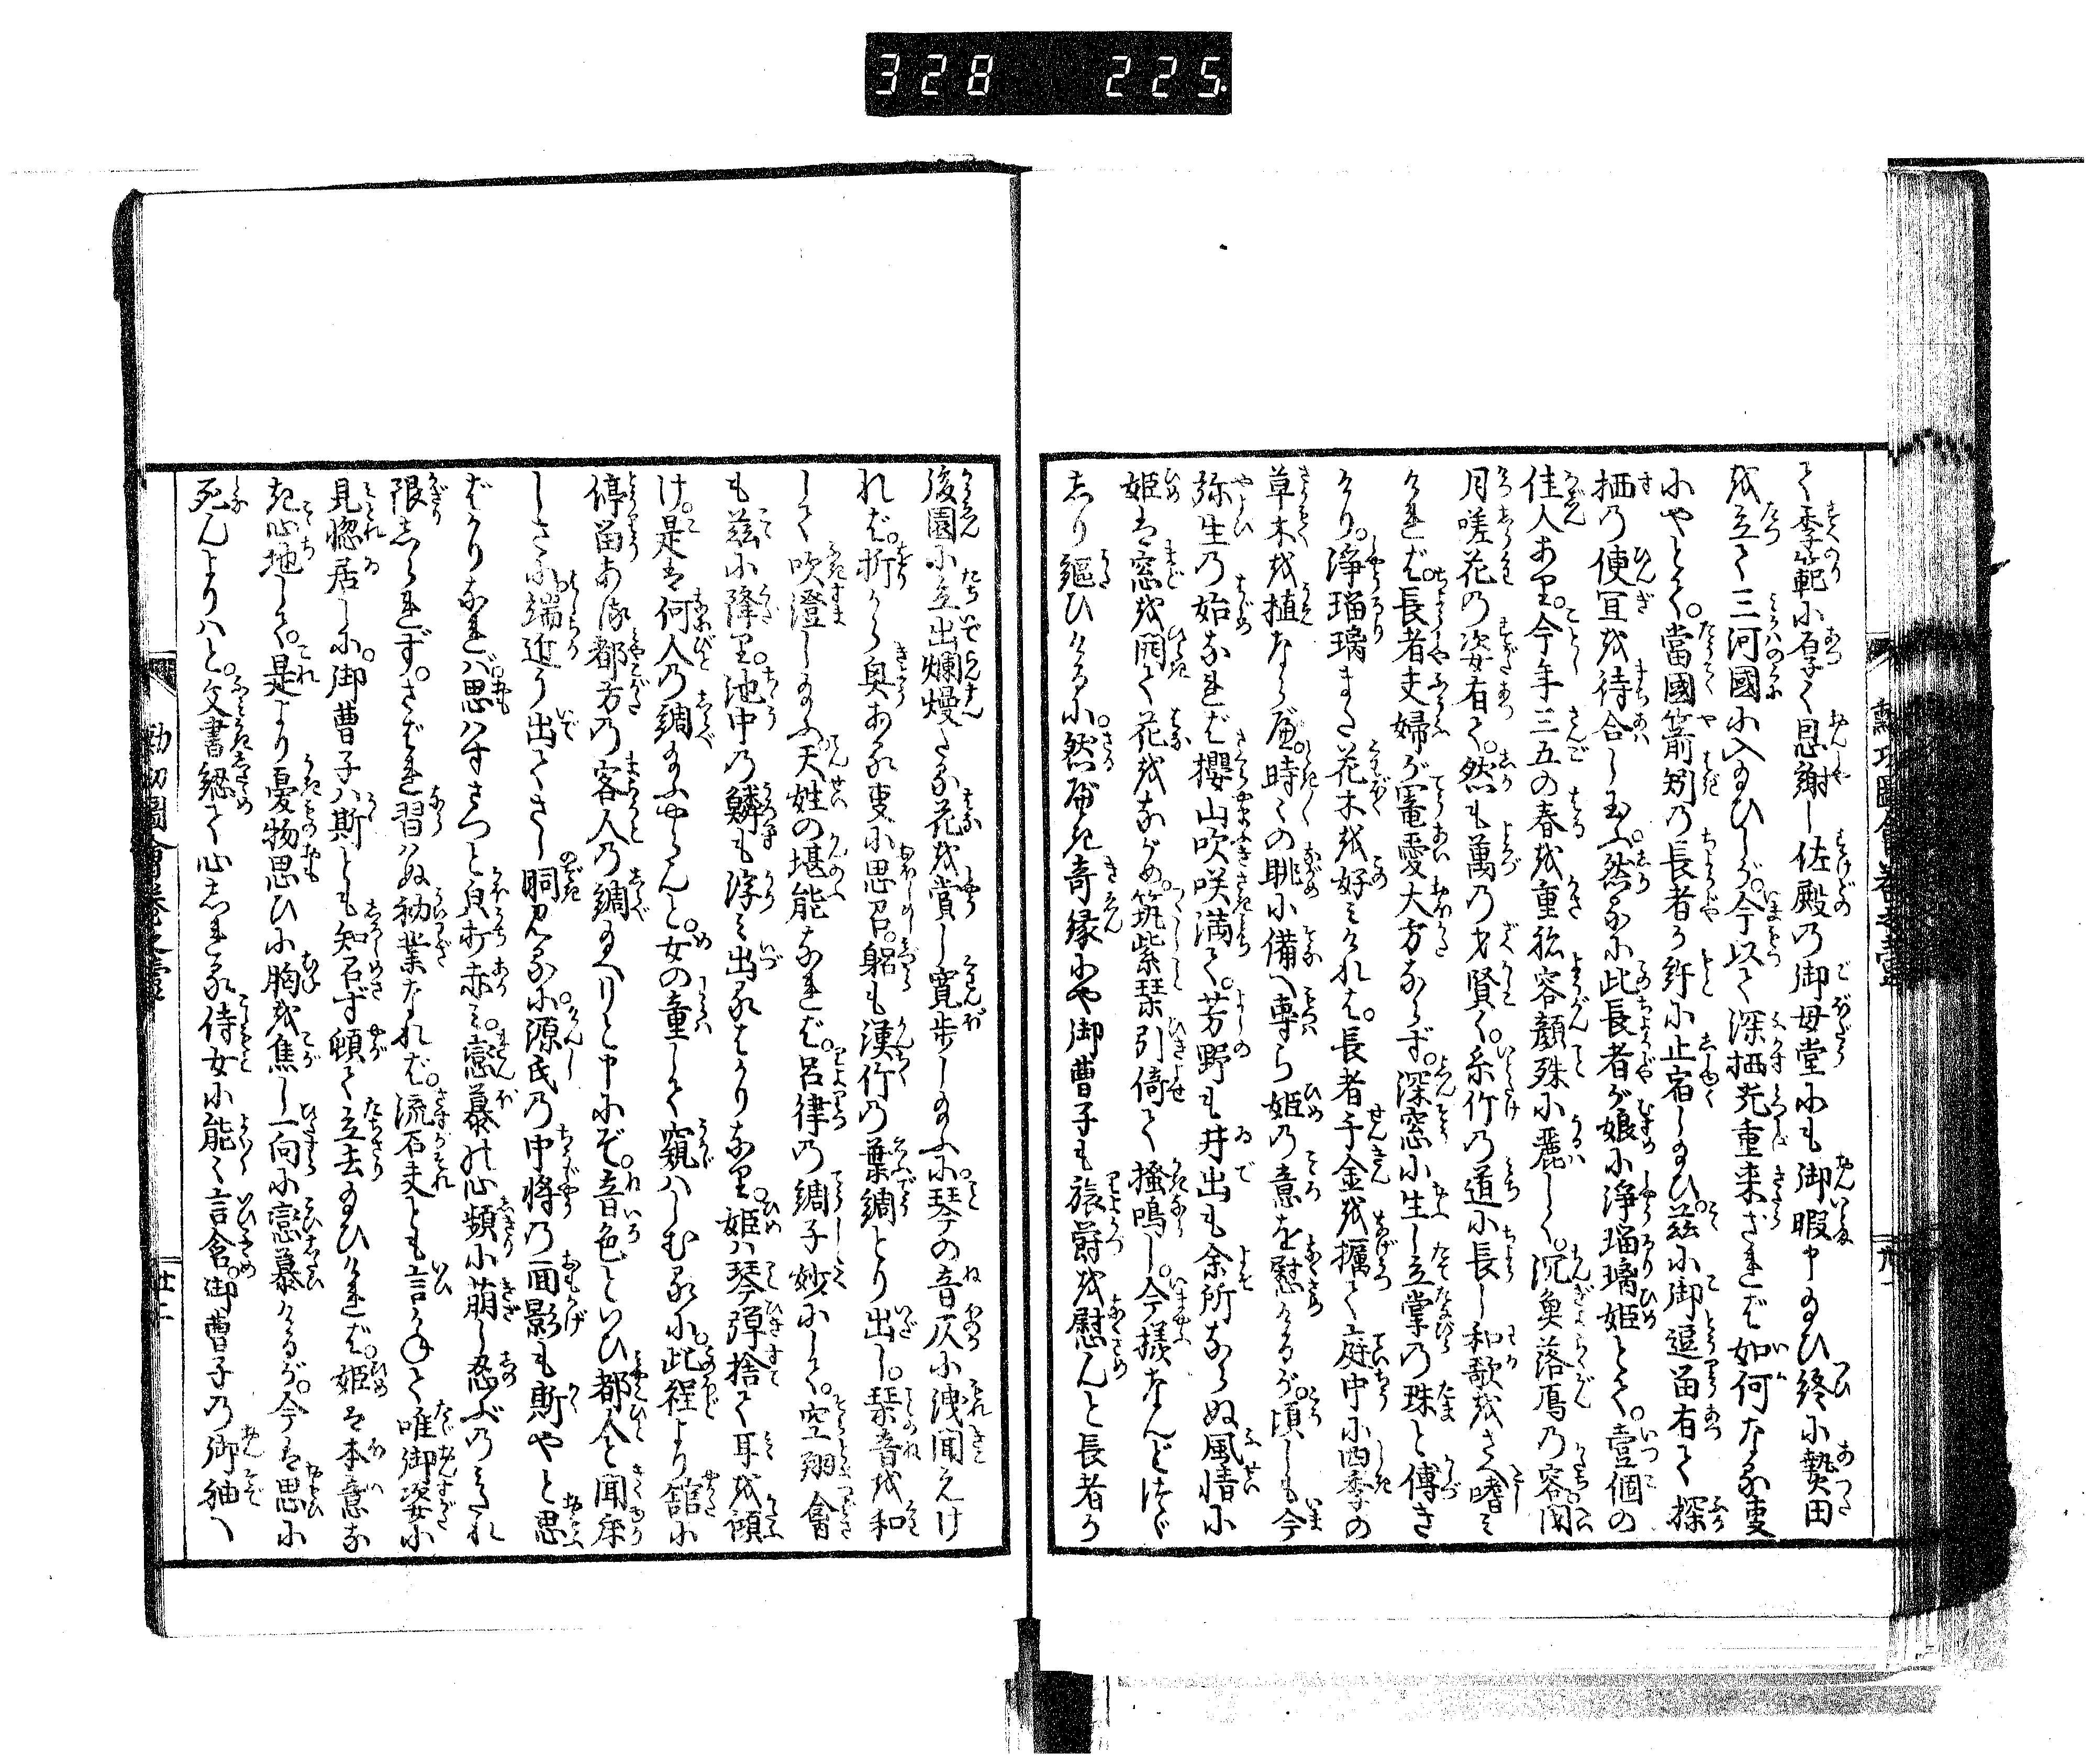 328 225
て季範に厚く恩謝し佐殿の御母堂にも御暇申給ひ終に熱田
を立て三河國に入給ひしが。今以て深栖光重来ざれば如何なる叓
にやとて。當國箭矧の長者が許に止宿し給ひ。茲に御逗留有て深
栖の便宜を待合し玉ふ。然るに此長者が娘に浄瑠璃姫とて。壹個の
佳人あり。今年三五の春を重ね容顔殊に麗しく。沉魚落鴈の容閉
月嗟花の姿有て。然も萬の才賢く。糸竹の道に長し和歌をさへ嗜み
ければ。長者夫婦が寵愛大方ならず。深窓に生し立掌の珠と傅き
けり。浄瑠璃また花木を好みければ。長者千金を擲て庭中に四季の
草木を植ならべ。時々の眺に備へ専ら姫の意を慰けるが。頃しも今
弥生の始なれば櫻山吹咲満て。芳野も井出も余所ならぬ風情に
姫は窓を開て花をながめ。筑紫琴引倚て掻鳴し。今様なんどほど
しり謳ひけるに。然るべき奇縁にや御曹子も旅欝を慰んと長者が
後園に立出爛熳たる花を賞し寛歩し給ふに。琴の音仄に洩聞えけ
れば。折から奥ある叓に思召。躬も漢竹の葉綢とり出し。琴音を和
して吹澄し給ふ。天姓の堪能なれば。呂律の綢子妙にして。空翔禽
も茲に降り。池中の鱗も浮み出るばかりなり。姫は琴弾捨て耳を傾
け。是は何人の綢給ふやらんと。女の童して窺はしむるに。此程より舘に
停畄ある都方の客人の綢給へりと申にぞ。音色といひ都人と聞床
しさに端近う出てさし覗見るに。源氏の中将の面影も斯やと思
ばかりなれば思はずさつと皃打赤み。戀慕の心頻に萠し忍ぶのみだれ
限しられず。さばれ習はぬ初業なれば。流石夫とも言かねて唯御姿に
見惚居しに。御曹子は斯とも知召ず頓て立去給ひければ。姫は本意な
き心地して。是より憂物思ひに胸を焦し一向に戀慕けるが。今は思に
死んよりはと。文書綴て心しれる侍女に能々言含。御曹子の御袖へ